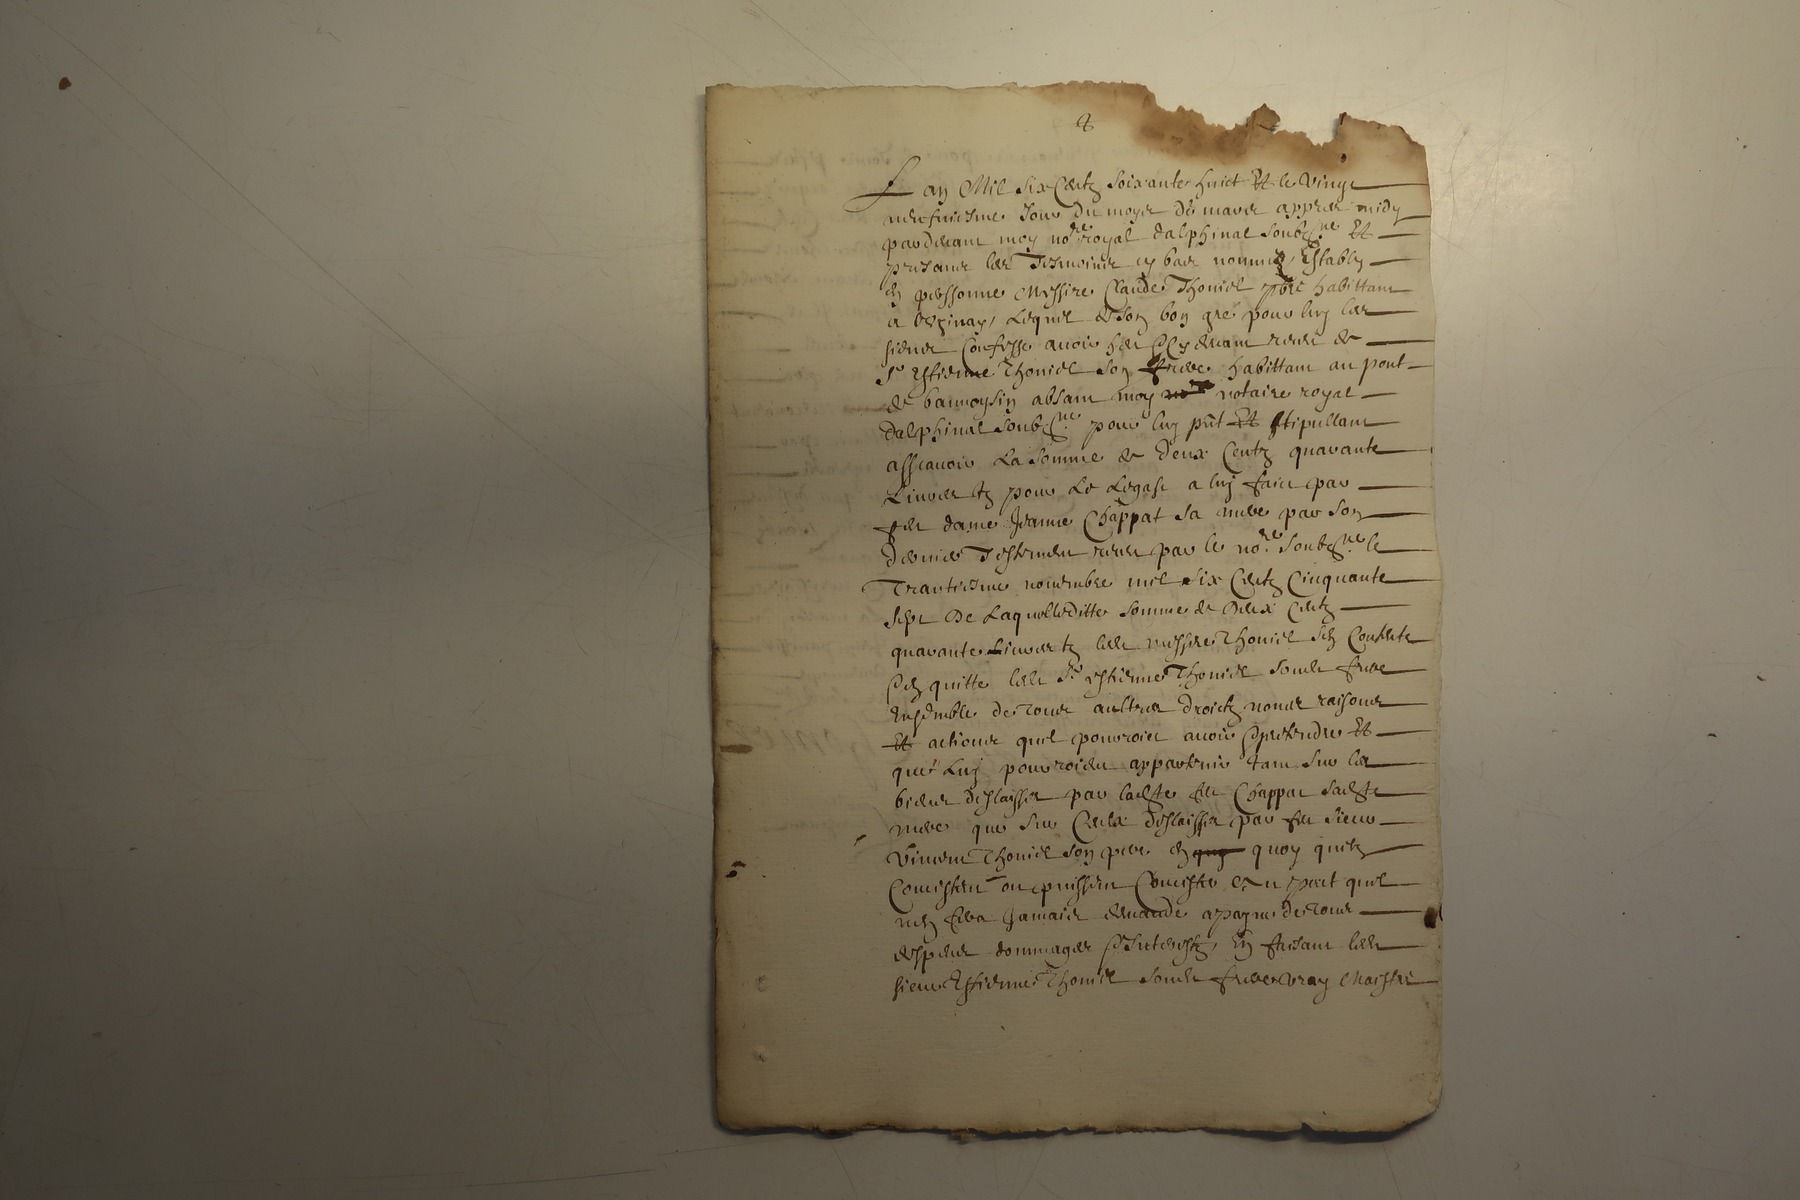 Lan Mil Six Centz Soixante huict Et le Vingt
neufviesme Jour du moys de mars appres midy
pardevant moy no.re royal dalphinal soubz.ne Et
presans les Tesmoins cy bas nommés Establÿ
en perssonne Messire Claude Thoniel pbre habittant
a Lequel de son bon gre pour luy les
siens Confesse avoir heu cy devant receu de
Sr Estienne Thoniel son frere habittant au pont
de bauvoysin absant moy notaire royal
dalphinal soubz.ne pour luy pnt Et stipullant
asscavoir La somme de deux Centz quarante
Livres tz pour Le Legast a luy faict par
feu dame Jeanne Chappat sa mere par son
dernier Testement receu par le no.re soubz.ne le
Trantiesme novembre mil six Centz Cinquante
sept De Laquelleditte somme de deux Centz
quarante Livres tz led messire Thoniel sen Contente
en quitte led Sr estienne Thoniel sond frere
Ensemble de tous aultres droictz noms raisons
Et actions quil pourroict avoir pretendre Et
que Luy pourroient appartenir tant sur les
biens deslaissés par ladte feu Chappat sadte
mere que sur Ceulx deslaissés par feu sieur
Vincent Thoniel son pere en quoy quilz
Concistent ou puissent Concister pact quil
nen fera Jamais demande a payne de tous
despens dommages Interestz En faisant led
sieur Estienne Thoniel sond frere vray Maistre